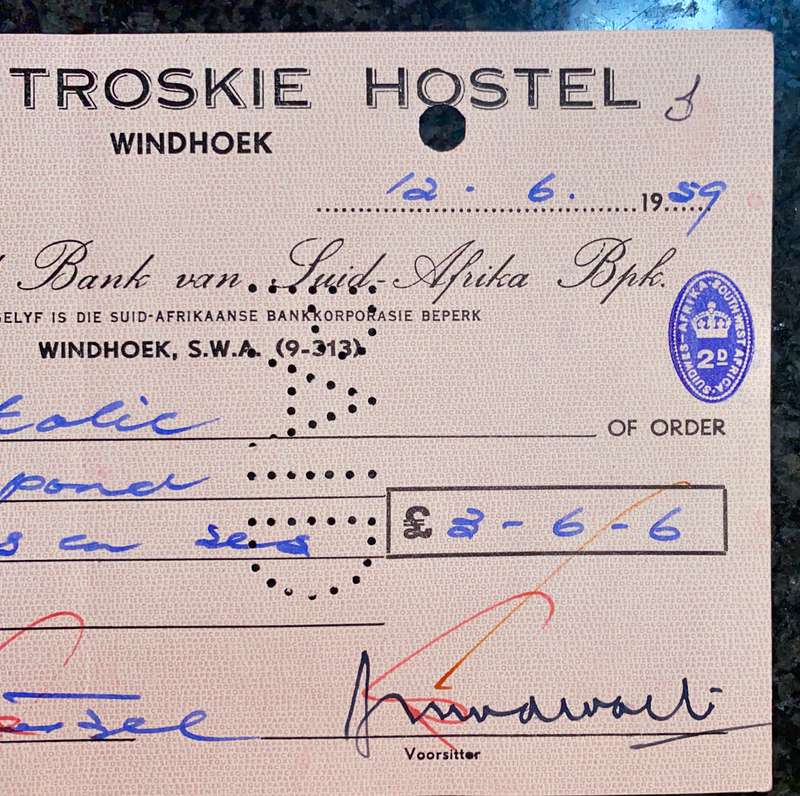 TROSKIE HOSTEL
WINDHOEK
12 . 6 . 1959
Bank van Suid-Afrika Bpk.
GELYF IS DIE SUID-AFRIKAANSE BANKKORPORASIE BEPERK
WINDHOEK, S.W.A. (9-313)
SUIDWES-AFRIKA SOUTH WEST AFRICA
2D
OF ORDER
pond
£ 3 - 6 - 6
en ses
Voorsitter